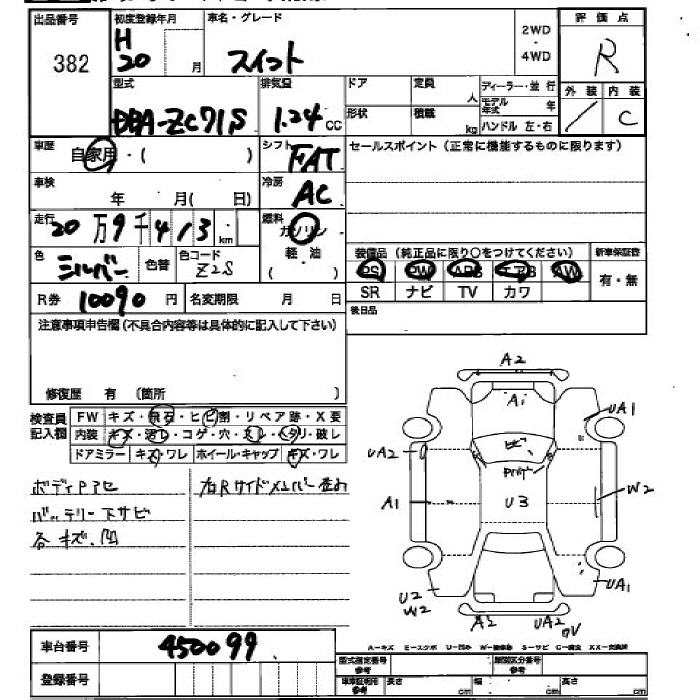 出品番号
382
初度登録年月
H
20
月
車名・グレード
スイフト
2WD
・
4WD
評価点
R
外装
内装
C
型式
DBA-ZC71S
排気量
1.24
CC
ドア
定員
人
形状
積載
kg
ディーラー・並行
モデル年式
年
ハンドル 左・右
車歴
自家用・(
)
シフト
FAT
セールスポイント(正常に機能するものに限ります)
車検
年
月(
日)
冷房
AC
走行
20万9千413
km
燃料
ガソリン
軽・油
(
)
色
シルバー
色替
色コード
Z2S
装備品 (純正品に限り○をつけてください)
新車保証書
PS
PW
ABS
エアB
AW
SR
ナビ
TV
カワ
有・無
R券
10090
円
名変期限
月
日
後日品
注意事項申告欄(不具合内容等は具体的に記入して下さい)
修復歴 有 〔箇所
〕
検査員
記入欄
FW
キズ・飛石・ヒビ割・リペア跡・X要
内装
キズ・汚レ・コゲ・穴・スレ・ヘタリ・破レ
ドアミラー
キズ・ワレ
ホイール・キャップ
キズ・ワレ
ボディPアセ
バッテリー下サビ
各キズ、凹
右Rサイドメンバー歪み
A2
Ai
UA1
UA2
ビ
A1
U3
W2
UA1
U2
W2
A2
UA2
車台番号
450099
登録番号
A-キズ E-エクボ U-凹み S-サビ C-腐食 XX-交換済
型式指定番号
参考
類別区分番号
参考
参考
長さ
cm
幅
cm
高さ
cm